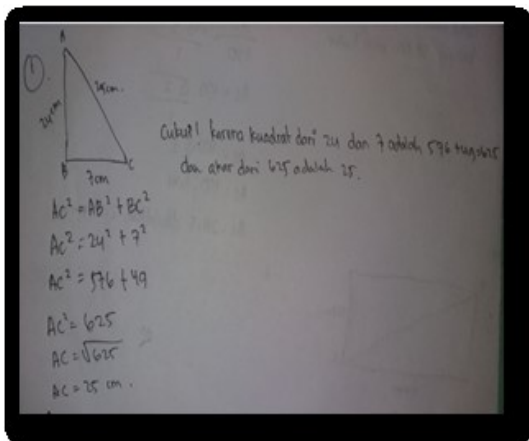 1.
A
24 cm
25 cm.
B
7 cm
C
Cukup! karena kuadrat dari 24 dan 7 adalah 576 + 49 = 625
dan akar dari 625 adalah 25.
AC² = AB² + BC²
AC² = 24² + 7²
AC² = 576 + 49
AC² = 625
AC = √625
AC = 25 cm.